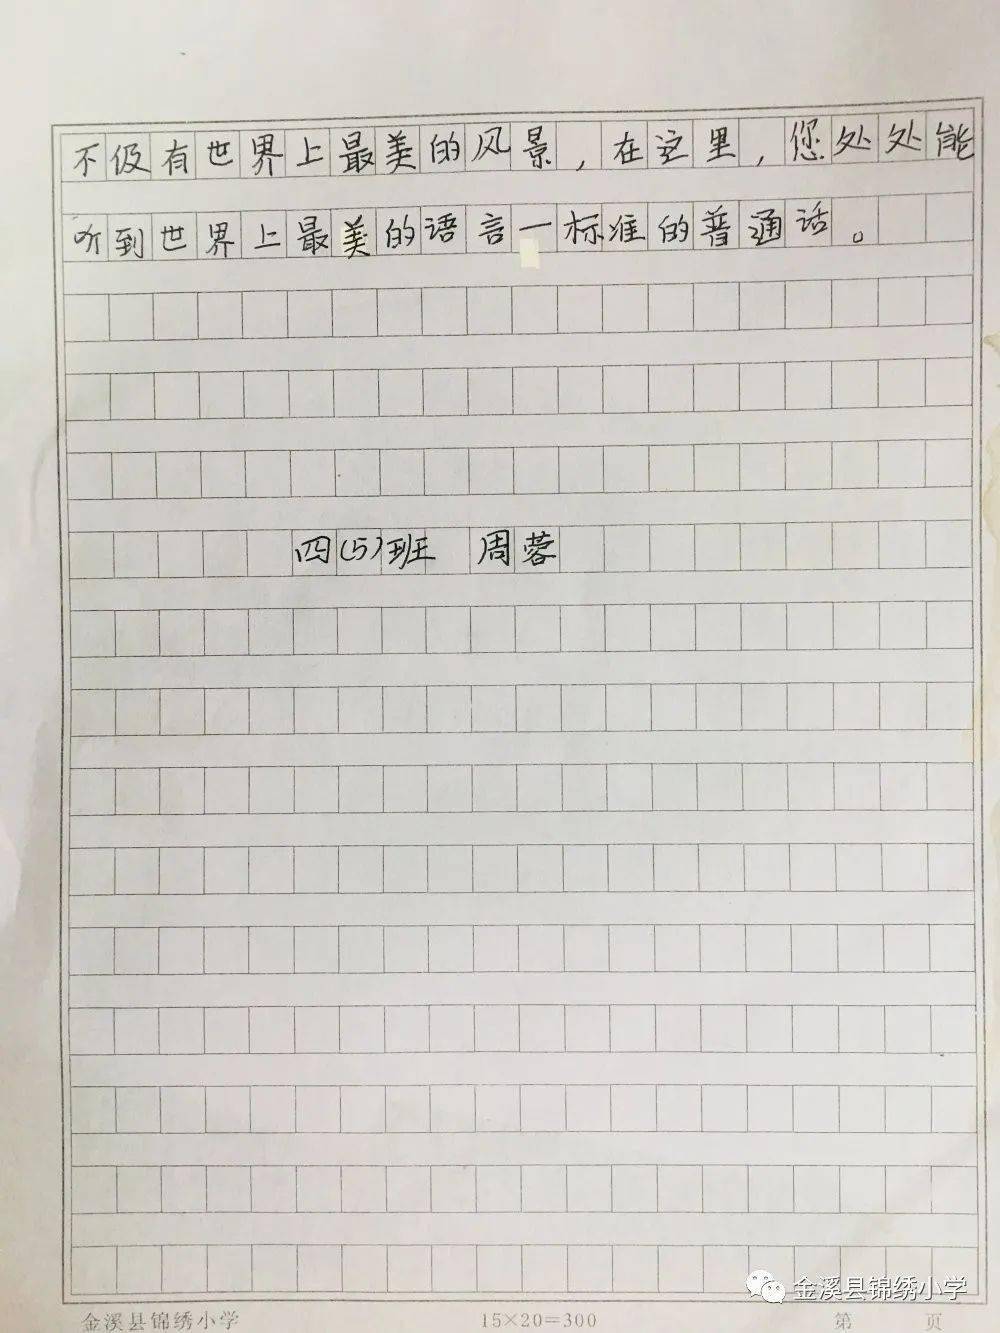 不仅有世界上最美的风景，在这里，您处处能
听到世界上最美的语言一标准的普通话。
四(5)班 周蓉
金溪县锦绣小学
金溪县锦绣小学 15×20=300 第 页